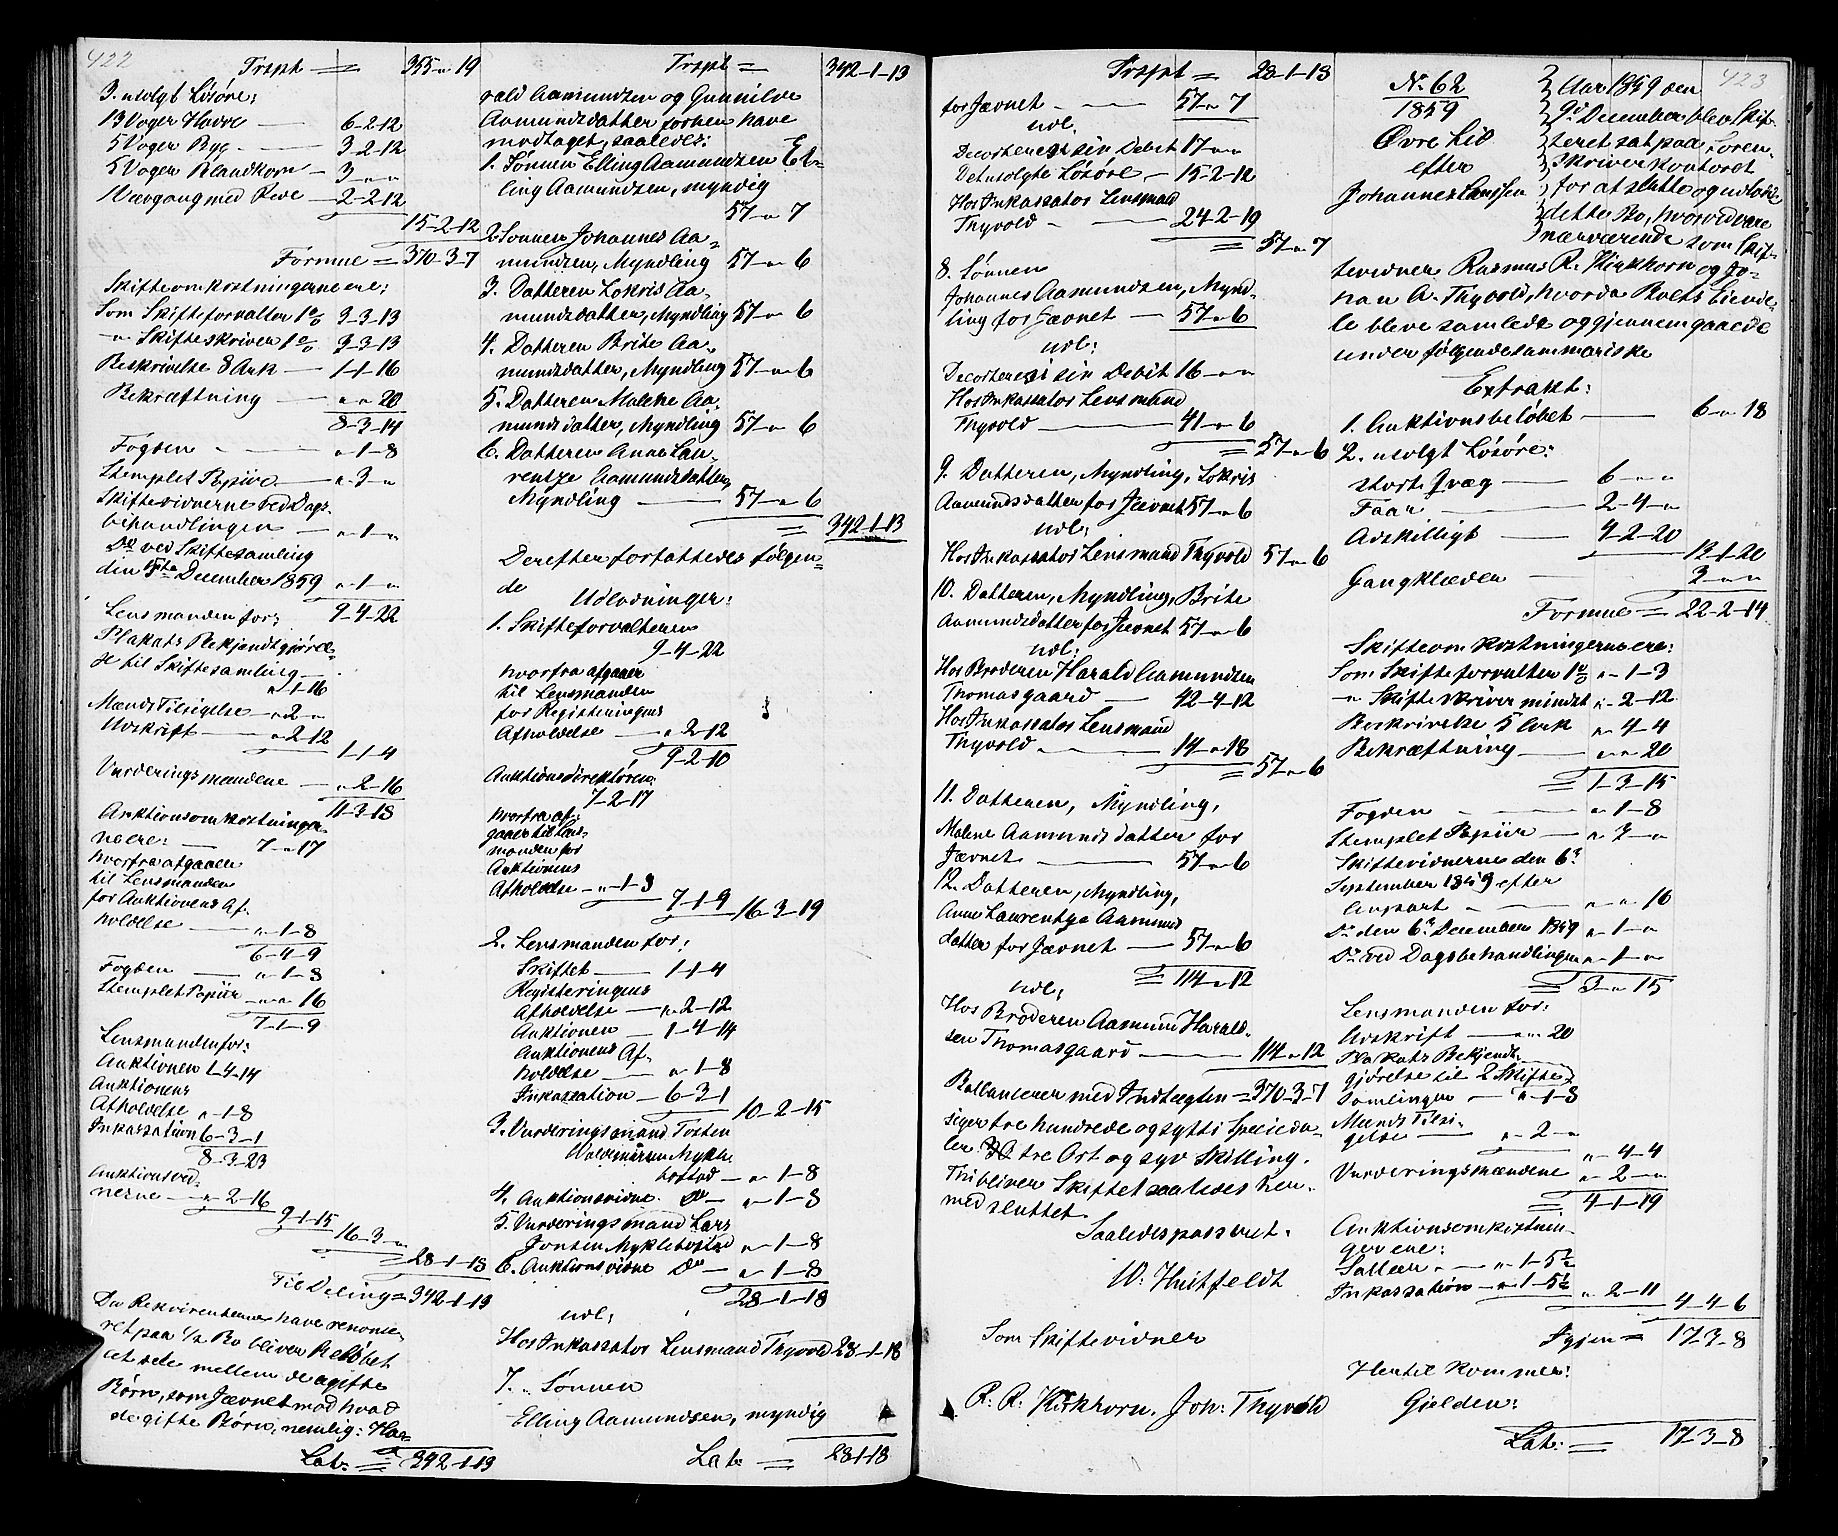 422
Trspt = 355 " 19
3. usolgt Løsøre:
13 Voger Havre — 6-2-12
5 Voger Byg — 3-2-12
5 Voger Blandkorn — 3 " "
Vævgang med Rede — 2-2-12
15-2-12
Formue = 370-3-7
Skifteomkostningerne ere:
Som Skifteforvalter 1% 3-3-13
" Skifteskriver 1% 3-3-13
Beskrivelse 8 Ark — 1-1-16
Bekræftning — " " 20
8-3-14
Fogden — " 1-8
Stemplet Papiir — " 3 "
Skiftevidnerne ved Dags-
behandlingen — " 1 "
Do ved Skiftesamling
den December 1859 " 1 "
9-4-22
Lensmanden for:
Plakats Bekjendtgjørel-
se til Skiftesamling —
" 1-16
Mænds Tilsigelse — " 2 "
Avskrift — " 2-12
1-1-4
Vurderingsmændene — " 2-16
11-3-18
Auktionsomkostninger-
ne ere: — 7 " 17
hvorfra afgaaer
til Lensmanden
for Auktionens Af-
holdelse — " 1-8
6-4-9
Fogden — " 1-8
Stemplet Papiir " " 16
7-1-9
Lensmanden for:
Auktionen 1-4-14
Auktionens
Afholdelse " 1-8
Inkassation 6-3-1
8-3-23
Auktionsvid-
nerne — " 2-16
9-1-15
16-3 "
28-1-18
Til Deling = 342-1-13
Da Rekvirenterne have renonce-
ret paa ½ Bo bliver Beløbet
at dele mellem de ugifte
Børn, som Jævnet mod hvad
de gifte Børn, nemlig: Ha-
Lat: = 342-1-13
Trspt = 342-1-13
rald Aamundsen og Gunnilde
Aamundsdatter forhen have
modtaget, saaledes:
1. Sønnen Elling Aamundsen El-
ling Aamundsen, myndig
57 " 7
2. Sønnen Johannes Aa-
mundsen, Myndling 57 " 6
3. Datteren Lokris Aa-
mundsdatter, Myndling 57 " 6
4. Datteren Brite Aa-
mundsdatter, Myndling 57 " 6
5. Datteren Malene Aa-
mundsdatter, Myndling 57 " 6
6. Datteren Anne Lau-
rentze Aamundsdatter,
Myndling — 57 " 6
= 342-1-13
Derefter forfattedes følgen-
de
Udlodninger:
1. Skifteforvalteren
9-4-22
hvorfra afgaaer
til Lensmanden
for Registeringens
Afholdelse — " 2-12
9-2-10
Auktionsdirektøren:
7-2-17
hvorfra af-
gaaer til Lens-
manden for
Auktionens
Afholdelse — " 1-8
7-1-9 16-3-19
2. Lensmanden for:
Skiftet — 1-1-4
Registeringens
Afholdelse — " 2-12
Auktionen — 1-4-14
Auktionens Af-
holdelse — " 1-8
Inkassation — 6-3-1
10-2-15
3. Vurderingsmand Tosten
Valdemarsen Mykle-
bostad — " 1-8
4. Auktionsvidne Do — " 1-8
5. Vurderingsmand Lars
Jonsen Myklebostad " 1-8
6. Auktionsvidne Do — " 1-8
28-1-18
udl:
Hos Inkassator Lensmand Thyvold 28-1-18
7. Sønnen
Elling Aamundsen, myndig
Lat: = 28-1-18
Trspt = 28-1-18
for Jævnet — 57 " 7
udl:
Decorterer i sin Debit 17 " "
Det usolgte Løsøre, — 15-2-12
Hos Inkassator Lensmand
Thyvold — 24-2-19
= 57 " 7
8. Sønnen
Johannes Aamundsen, Mynd-
ling for Jævnet — 57 " 6
udl:
Decorterer i sin Debit 16 " "
Hos Inkassator Lensmand
Thyvold — 41 " 6
= 57 " 6
9. Datteren, Myndling, Lokris
Aamundsdatter for Jævnet 57 " 6
udl:
Hos Inkassator Lensmand Thyvold 57 " 6
10. Datteren, Myndling, Brite
Aamundsdatter for Jævnet 57 " 6
udl:
Hos Broderen Harald Aamundsen
Thomasgaard — 42-4-12
Hos Inkassator Lensmand
Thyvold — 14 " 18
= 57 " 6
11. Datteren, Myndling,
Malene Aamundsdatter for
Jævnet — 57 " 6
12. Datteren, Myndling,
Anne Laurentze Aamunds-
datter for Jævnet — 57 " 6
= 114 " 12
udl:
Hos Broderen Aamund Harald-
sen Thomasgaard — 114 " 12
Ballancerer med Indtægten = 370-3-7
siger tre hundrede og sytti Speciedа-
ler tre Ort og syv Skilling.
Thi bliver Skiftet saaledes her-
med sluttet.
Saaledes passeret.
W. Huitfeldt
Som Skiftevidner
R. R. Kirkhorn. Joh: Thyvold
423
No. 62
1859
Øvre Lid
efter
Johannes Larssen
Aar 1859 den
9de December blev Skif-
teret sat paa Soren-
skriverkontoret
for at slutte og udlodde
dette Bo, hvorved vare
nærværende som Skif-
tevidner Rasmus R. Kirkhorn og Jo-
han A. Thyvold, hvorda Boets Eiende-
le bleve samlede og gjennemgaaede
under følgende summariske
Extrakt:
1. Auktionsbeløbet — 6 " 18
2. usolgt Løsøre:
stort Qvæg — 6 " "
Faar — 2-4 "
Adskilligt — 4-2-20
13-1-20
Gangklæder — 3 " "
Formue = 22-2-14
Skifteomkostningerne ere:
Som Skifteforvalter 1% " 1-3
" Skifteskriver mindst " 2-12
Beskrivelse 5 Ark " 4-4
Bekræftning — " " 20
= 1-3-15
Fogden — " 1-8
Stemplet Papiir — " 3 "
Skiftevidnerne den 6te
September 1859 efter
Anpart — " " 16
Do den 6te December 1859 " 1 "
Do ved Dagsbehandlingen " 1 "
= 3 " 15
Lensmanden for:
Avskrift — " " 20
Plakats Bekjendt-
gjørelse til 2 Skifte-
samlinger — " 1-8
Mænds Tilsi-
gelse — " 2 "
" 4-4
Vurderingsmændene " 2 "
= 4-1-19
Auktionsomkostnin-
gerne ere:
Sallær " — " 1-5½
Inkassation — " 1-5½ " 2-11
4-4-6
Igjen = 17-3-8
Hertil kommer:
Gjelden:
Lat: = 17-3-8